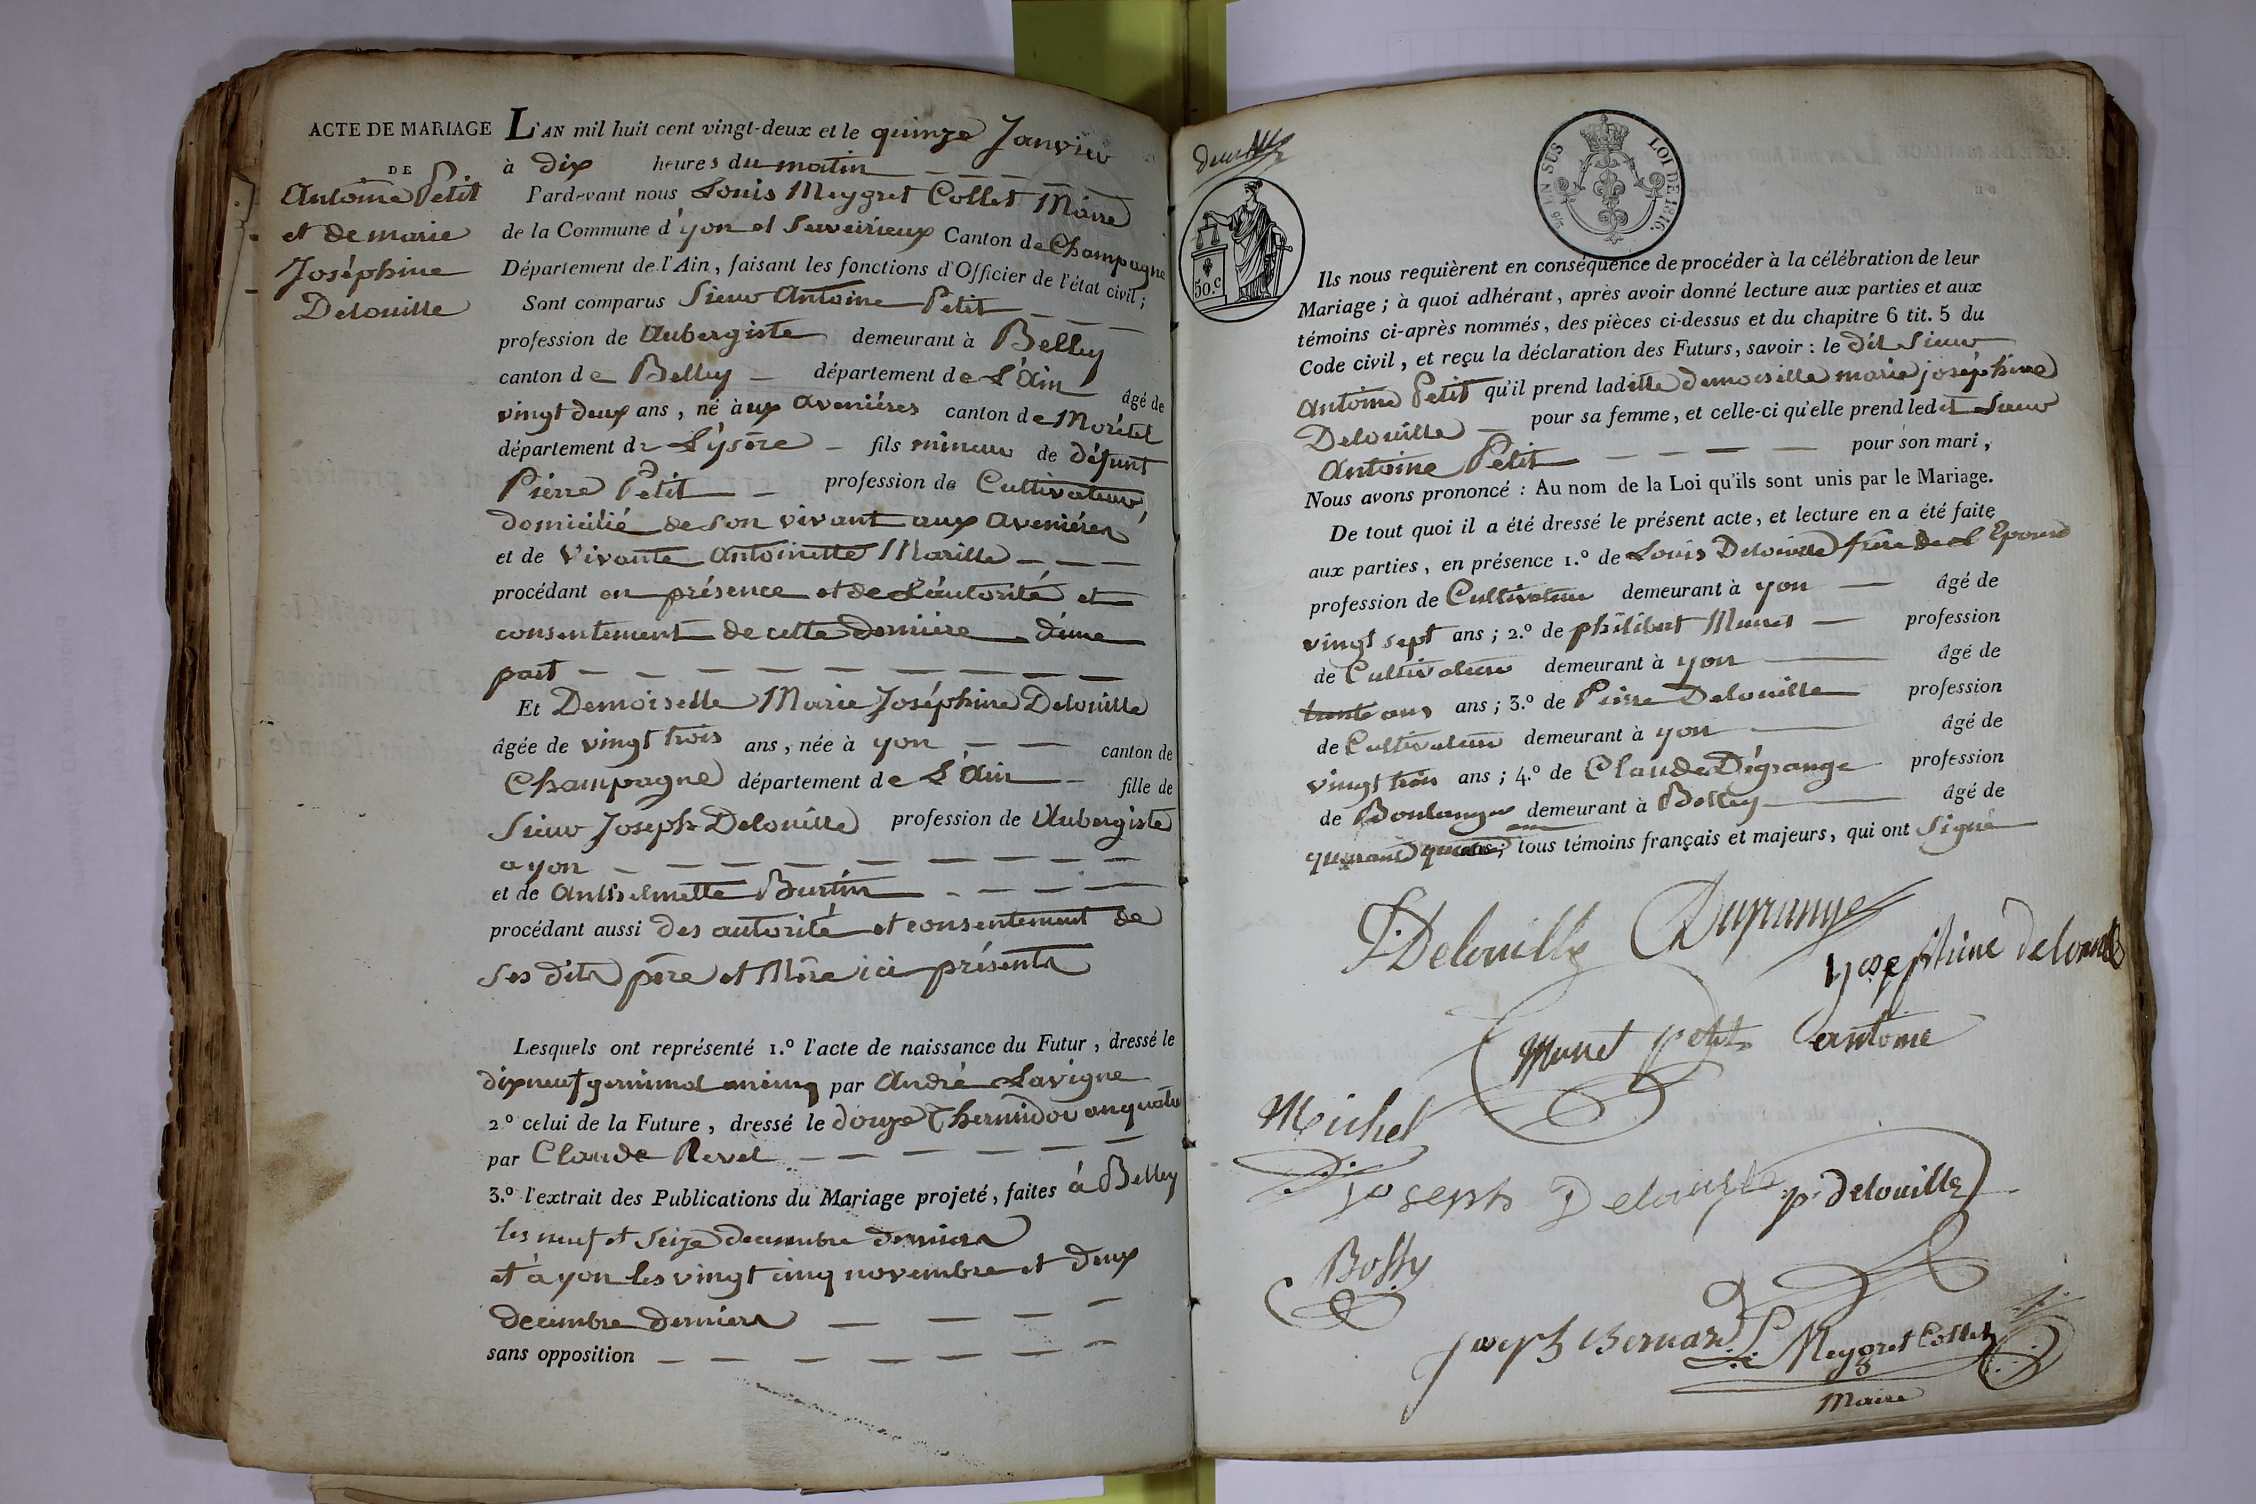 ACTE DE MARIAGE
DE
Antoine Petit
et de marie
Joséphine
Delouille
L'AN mil huit cent vingt-deux et le quinze Janvier
à dix heures du matin
Pardevant nous Louis Meygret Collet Maire
de la Commune d'yon et Cerveirieux Canton de Champagne
Département de l'Ain, faisant les fonctions d'Officier de l'état civil;
Sont comparus Sieur Antoine Petit
profession de Aubergiste demeurant à Belley
canton de Belley département de L'Ain âgé de
vingt deux ans, né à ux Aveniéres canton de Moréstel
département de L'ysère fils mineur de défunt
Pierre Petit profession de Cultivateur,
domicilié de son vivant aux aveniéres
et de Vivante Antoinette Marille
procédant en présence et de L'autorité et
consentement de cette derniere d'une
part
Et Demoiselle Marie Joséphine Delouille
âgée de vingt trois ans, née à yon canton de
Champagne département de L'Ain fille de
Sieur Joseph Delouille profession de Aubergiste
a yon
et de Anthelmette Burtin
procédant aussi des autorité et consentement de
ses dits père et Mère ici présents
Lesquels ont représenté 1.º l'acte de naissance du Futur, dressé le
dix neuf germinal par André Lavigne
2º celui de la Future, dressé le douze Thermidor an quatre
par Claude Revel
3.º l'extrait des Publications du Mariage projeté, faites à Belley
les neuf et seize decembre derniers
et à yon les vingt cinq novembre et deux
decembre derniers
sans opposition
50.c
LOI DE 1816.
Ils nous requièrent en conséquence de procéder à la célébration de leur
Mariage; à quoi adhérant, après avoir donné lecture aux parties et aux
témoins ci-après nommés, des pièces ci-dessus et du chapitre 6 tit. 5 du
Code civil, et reçu la déclaration des Futurs, savoir: le dit Sieur
Antoine Petit qu'il prend ladite demoiselle marie joséphine
Delouille pour sa femme, et celle-ci qu'elle prend ledit Sieur
Antoine Petit pour son mari,
Nous avons prononcé: Au nom de la Loi qu'ils sont unis par le Mariage.
De tout quoi il a été dressé le présent acte, et lecture en a été faite
aux parties, en présence 1.º de Louis Delouille frère de L'Epouse
profession de Cultivateur demeurant à yon âgé de
vingt sept ans; 2.º de philibert Munet profession
de Cultivateur demeurant à yon âgé de
trente ans ans; 3.º de Pierre Delouille profession
de Cultivateur demeurant à yon âgé de
vingt trois ans; 4.º de Claude Dégrange profession
de Boulanger demeurant à Belley âgé de
quarante ans; tous témoins français et majeurs, qui ont signé
Delouille
Josephine delouille
Munet petit antoine
Michel
Joseph Delouille p. delouille
Bossy
Joseph Bernard L. Meygret Collet
Maire